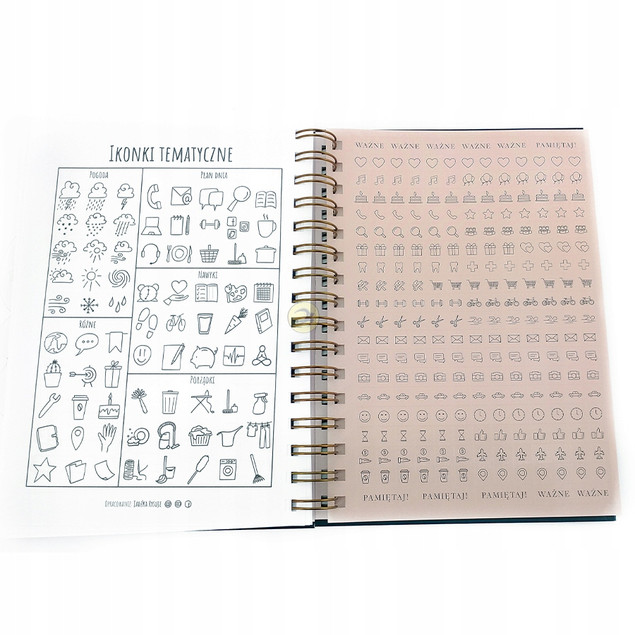 IKONKI TEMATYCZNE
POGODA
PLAN DNIA
NAWYKI
RÓŻNE
PORZĄDKI
OPRACOWANIE:
WAŻNE WAŻNE WAŻNE WAŻNE PAMIĘTAJ!
PAMIĘTAJ! PAMIĘTAJ! PAMIĘTAJ! WAŻNE WAŻNE